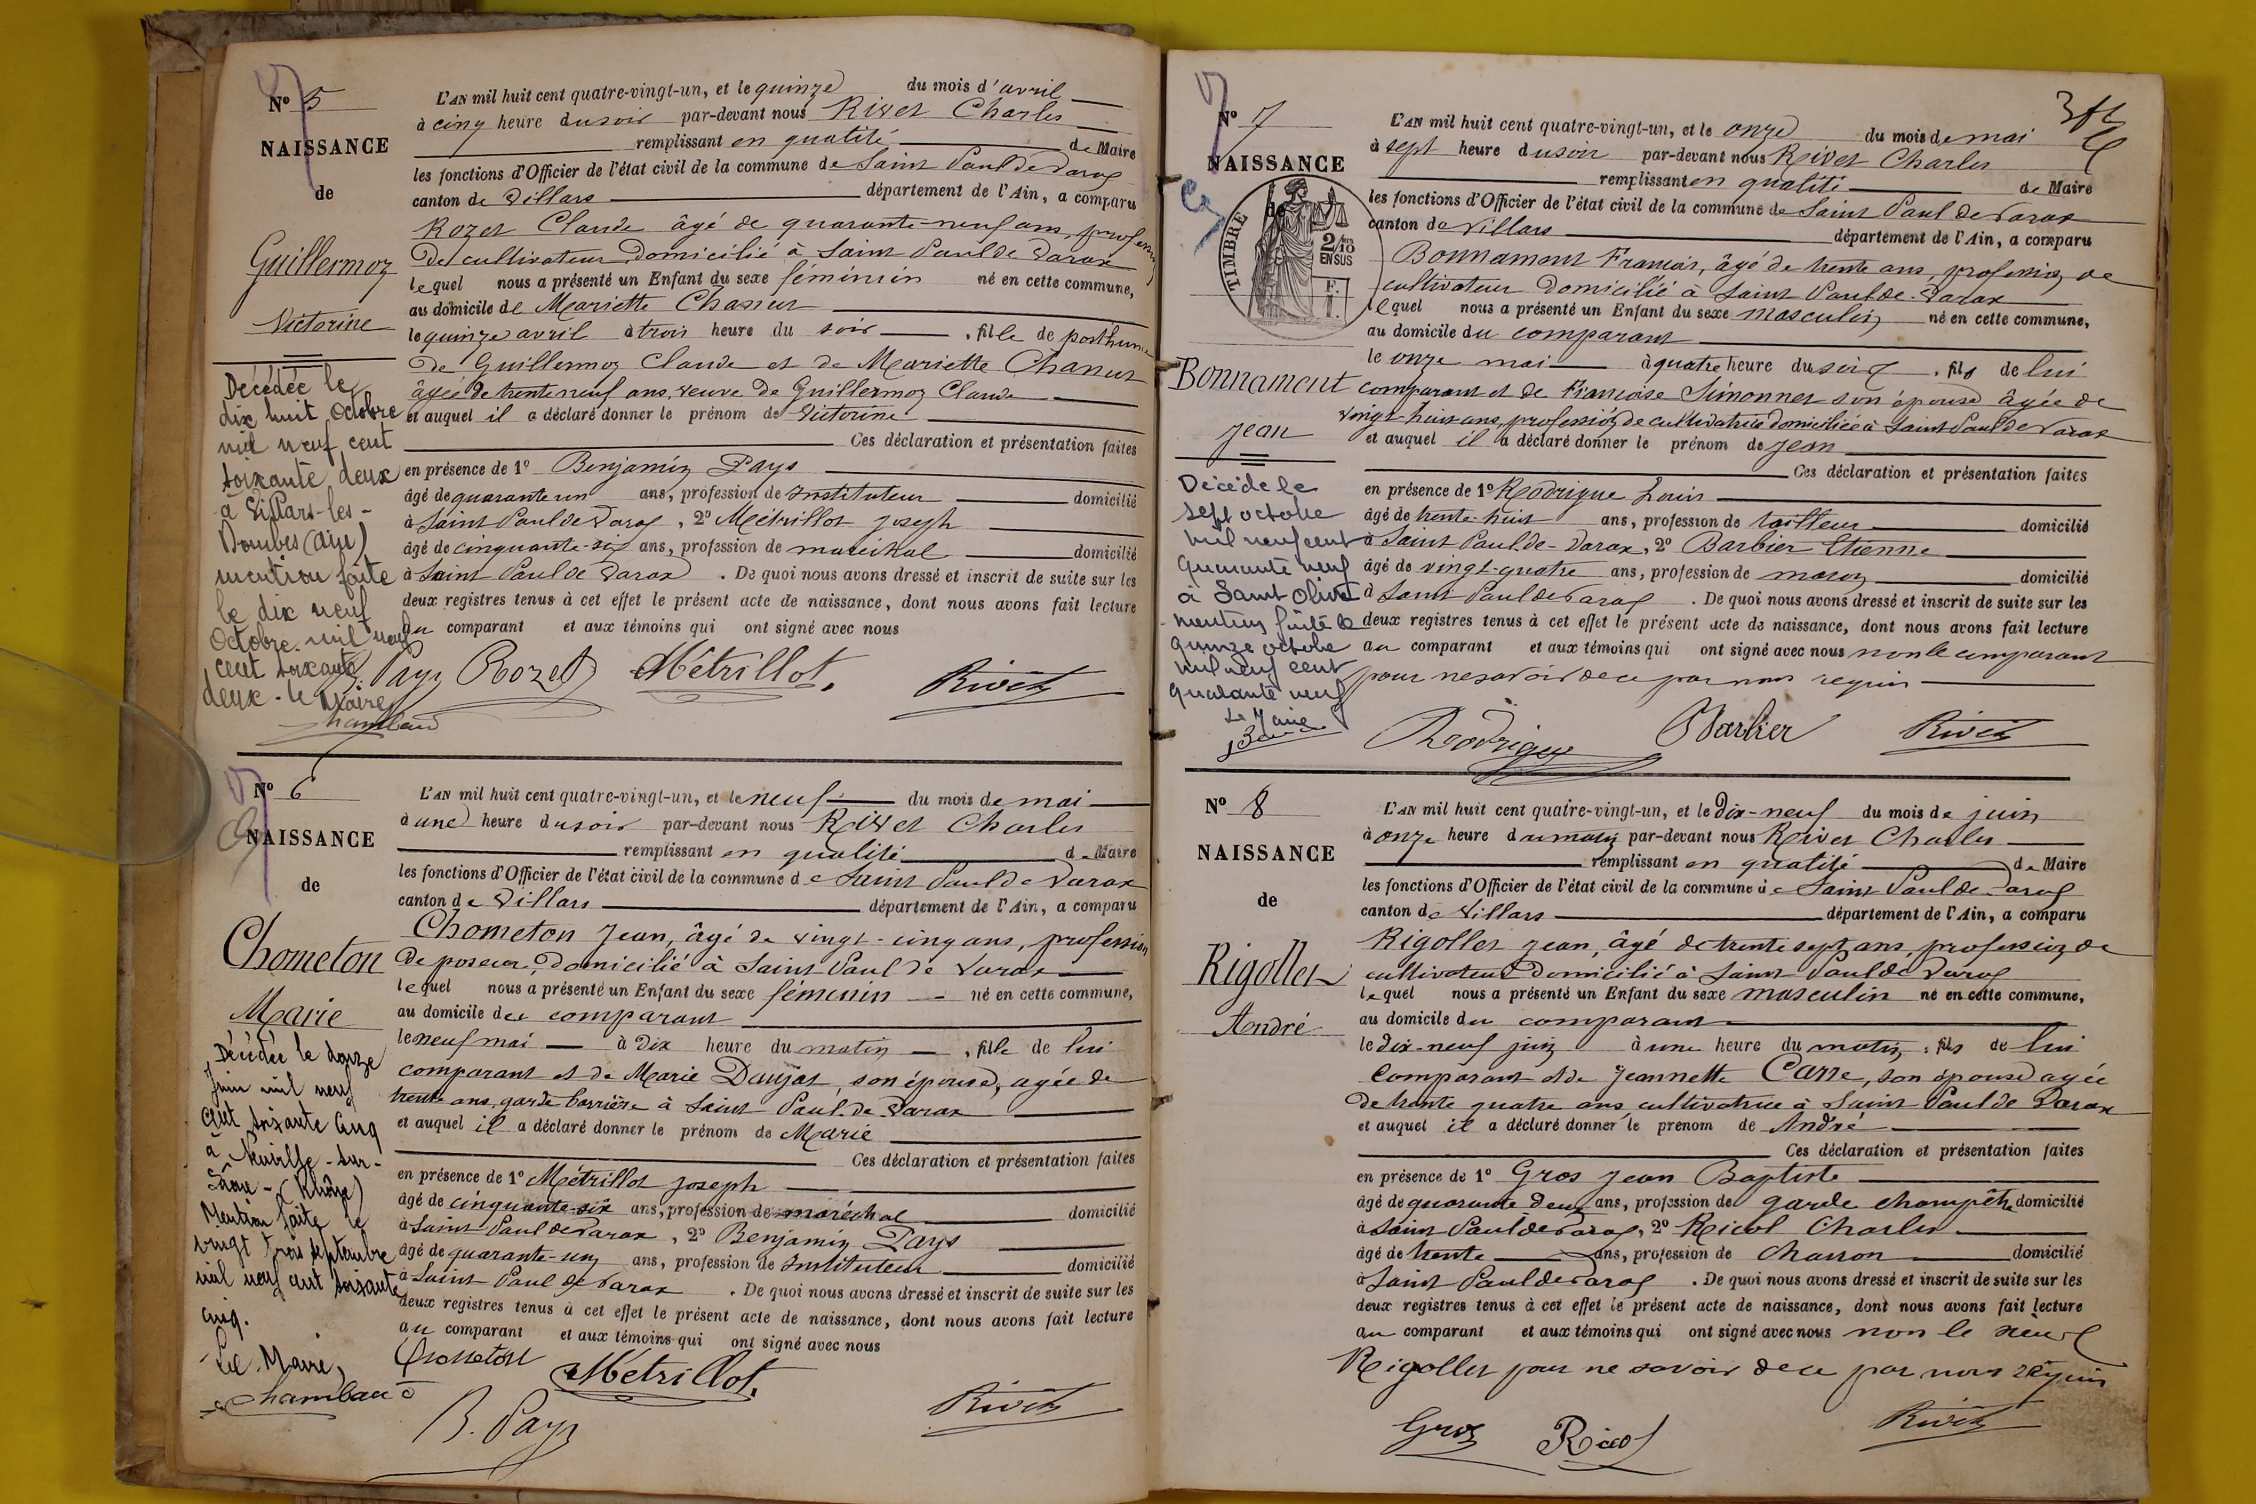 Nº 5
NAISSANCE
de
Guillermoz
Victorine
Décédée le
dix huit Octobre
mil neuf cent
soixante deux
à Villars-les-
Dombes (Ain)
mention faite
le dix neuf
Octobre mil neuf
cent soixante
deux - le Maire
Chambaud
L'AN mil huit cent quatre-vingt-un, et le quinze du mois d'avril
à cinq heure du soir par-devant nous Rivet Charles
remplissant en qualité de Maire
les fonctions d'Officier de l'état civil de la commune de Saint Paul de Varax
canton de Villars département de l'Ain, a comparu
Rozet Claude âgé de quarante-neuf ans, profession
de cultivateur domicilié à Saint Paul de Varax
lequel nous a présenté un Enfant du sexe féminin né en cette commune,
au domicile de Mariette Chanut
le quinze avril à trois heure du soir, fille de posthume
de Guillermoz Claude et de Mariette Chanut
âgée de trente neuf ans, veuve de Guillermoz Claude
et auquel il a déclaré donner le prénom de Victorine
Ces déclaration et présentation faites
en présence de 1º Benjamin Pays
âgé de quarante un ans, profession de Instituteur domicilié
à Saint Paul de Varax, 2º Métrillot Joseph
âgé de cinquante-six ans, profession de maréchal domicilié
à Saint Paul de Varax. De quoi nous avons dressé et inscrit de suite sur les
deux registres tenus à cet effet le présent acte de naissance, dont nous avons fait lecture
au comparant et aux témoins qui ont signé avec nous
B. Pays Rozet Métrillot. Rivet
Nº 6
NAISSANCE
de
Chometon
Marie
Décédée le douze
Juin mil neuf
cent soixante cinq
à Neuville-sur-
Saône - (Rhône)
Mention faite le
vingt trois septembre
mil neuf cent soixante
cinq.
Le Maire,
Chambaud
L'AN mil huit cent quatre-vingt-un, et le neuf du mois de mai
à une heure du soir par-devant nous Rivet Charles
remplissant en qualité de Maire
les fonctions d'Officier de l'état civil de la commune de Saint Paul de Varax
canton de Villars département de l'Ain, a comparu
Chometon Jean, âgé de vingt-cinq ans, profession
de poseur, domicilié à Saint Paul de Varax
lequel nous a présenté un Enfant du sexe féminin né en cette commune,
au domicile du comparant
le neuf mai à dix heure du matin, fille de lui
comparant et de Marie Daujat, son épouse, agée de
trente ans, garde barrière à Saint Paul de Varax
et auquel il a déclaré donner le prénom de Marie
Ces déclaration et présentation faites
en présence de 1º Métrillot Joseph
âgé de cinquante-six ans, profession de maréchal domicilié
à Saint Paul de Varax, 2º Benjamin Pays
âgé de quarante-un ans, profession de Instituteur domicilié
à Saint Paul de Varax. De quoi nous avons dressé et inscrit de suite sur les
deux registres tenus à cet effet le présent acte de naissance, dont nous avons fait lecture
au comparant et aux témoins qui ont signé avec nous
Chometon Métrillot.
B. Pays Rivet
Nº 7
NAISSANCE
de
TIMBRE
2/10
EN SUS
Bonnament
Jean
Décédé le
sept octobre
mil neuf cent
quarante neuf
à Saint Olive
mention faite le
quinze octobre
mil neuf cent
quarante neuf
Le Maire
L'AN mil huit cent quatre-vingt-un, et le onze du mois de mai
à sept heure du soir par-devant nous Rivet Charles
remplissant en qualité de Maire
les fonctions d'Officier de l'état civil de la commune de Saint Paul de Varax
canton de Villars département de l'Ain, a comparu
Bonnament François, âgé de trente ans, profession de
cultivateur domicilié à Saint Paul de Varax
lequel nous a présenté un Enfant du sexe masculin né en cette commune,
au domicile du comparant
le onze mai à quatre heure du soir, fils de lui
comparant et de Françoise Simonnet son épouse âgée de
vingt-huit ans, profession de cultivatrice domiciliée à Saint Paul de Varax
et auquel il a déclaré donner le prénom de Jean
Ces déclaration et présentation faites
en présence de 1º Rodrigue Louis
âgé de trente-huit ans, profession de tailleur domicilié
à Saint Paul de-Varax, 2º Barbier Etienne
âgé de vingt-quatre ans, profession de maçon domicilié
à Saint Paul de Varax. De quoi nous avons dressé et inscrit de suite sur les
deux registres tenus à cet effet le présent acte de naissance, dont nous avons fait lecture
au comparant et aux témoins qui ont signé avec nous non le comparant
pour ne savoir de ce par nous requis
Rodrigue Barbier Rivet
Nº 8
NAISSANCE
de
Rigollet
André
L'AN mil huit cent quatre-vingt-un, et le dix-neuf du mois de juin
à onze heure du matin par-devant nous Rivet Charles
remplissant en qualité de Maire
les fonctions d'Officier de l'état civil de la commune de Saint Paul de Varax
canton de Villars département de l'Ain, a comparu
Rigollet Jean, âgé de trente sept ans, profession de
cultivateur domicilié à Saint Paul de Varax
lequel nous a présenté un Enfant du sexe masculin né en cette commune,
au domicile du comparant
le dix-neuf juin à une heure du matin, fils de lui
comparant et de Jeannette Carre, son épouse agée
de trente quatre ans cultivatrice à Saint Paul de Varax
et auquel il a déclaré donner le prénom de André
Ces déclaration et présentation faites
en présence de 1º Gros Jean Baptiste
âgé de quarante deux ans, profession de garde champêtre domicilié
à Saint Paul de Varax, 2º Ricol Charles
âgé de trente ans, profession de charron domicilié
à Saint Paul de Varax. De quoi nous avons dressé et inscrit de suite sur les
deux registres tenus à cet effet le présent acte de naissance, dont nous avons fait lecture
au comparant et aux témoins qui ont signé avec nous non le sieur
Rigollet pour ne savoir de ce par nous requis
Gros Ricol Rivet